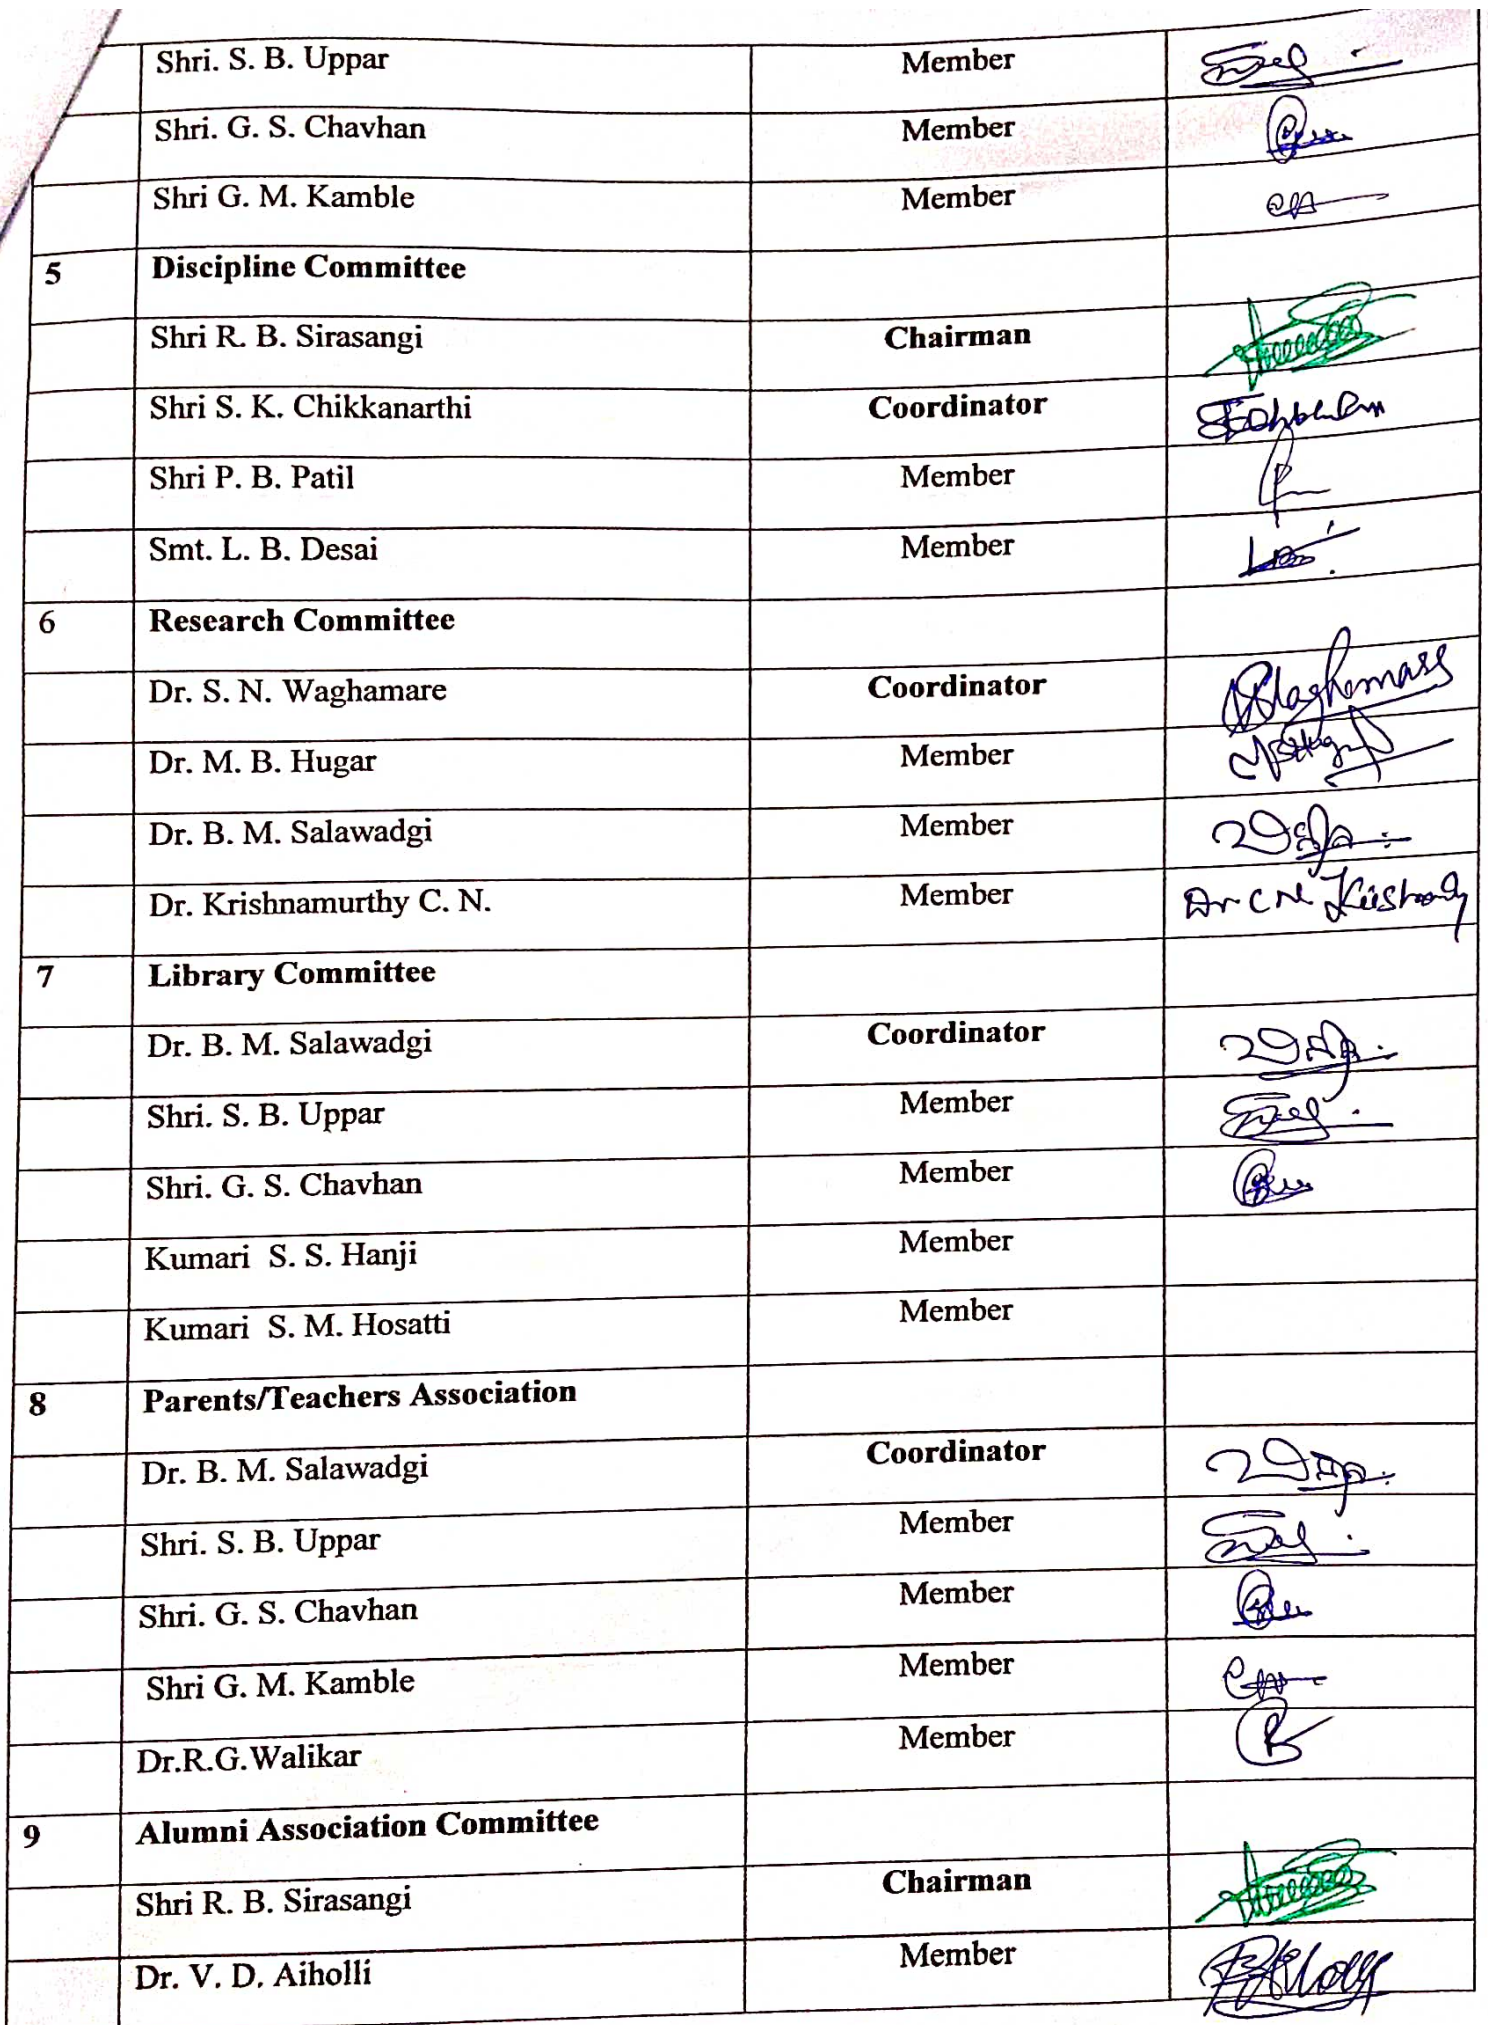 Shri. S. B. Uppar Member
Shri. G. S. Chavhan Member
Shri G. M. Kamble Member
5 Discipline Committee
Shri R. B. Sirasangi Chairman
Shri S. K. Chikkanarthi Coordinator
Shri P. B. Patil Member
Smt. L. B. Desai Member
6 Research Committee
Dr. S. N. Waghamare Coordinator
Dr. M. B. Hugar Member
Dr. B. M. Salawadgi Member
Dr. Krishnamurthy C. N. Member
7 Library Committee
Dr. B. M. Salawadgi Coordinator
Shri. S. B. Uppar Member
Shri. G. S. Chavhan Member
Kumari S. S. Hanji Member
Kumari S. M. Hosatti Member
8 Parents/Teachers Association
Dr. B. M. Salawadgi Coordinator
Shri. S. B. Uppar Member
Shri. G. S. Chavhan Member
Shri G. M. Kamble Member
Dr.R.G.Walikar Member
9 Alumni Association Committee
Shri R. B. Sirasangi Chairman
Dr. V. D. Aiholli Member